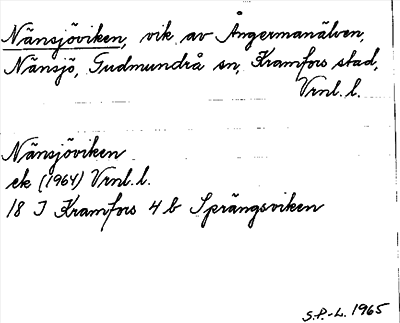 Nänsjöviken, vik av Ångermanälven,
Nänsjö, Gudmundrå sn, Kramfors stad,
Vrnl. l.
Nänsjöviken
ek (1964) Vrnl. l.
18 I Kramfors 4 b Sprängsviken
S.P.-L. 1965